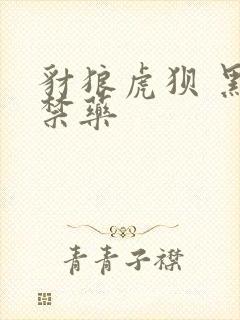 豺狼虎狈 黑
禁藥
青青子襟